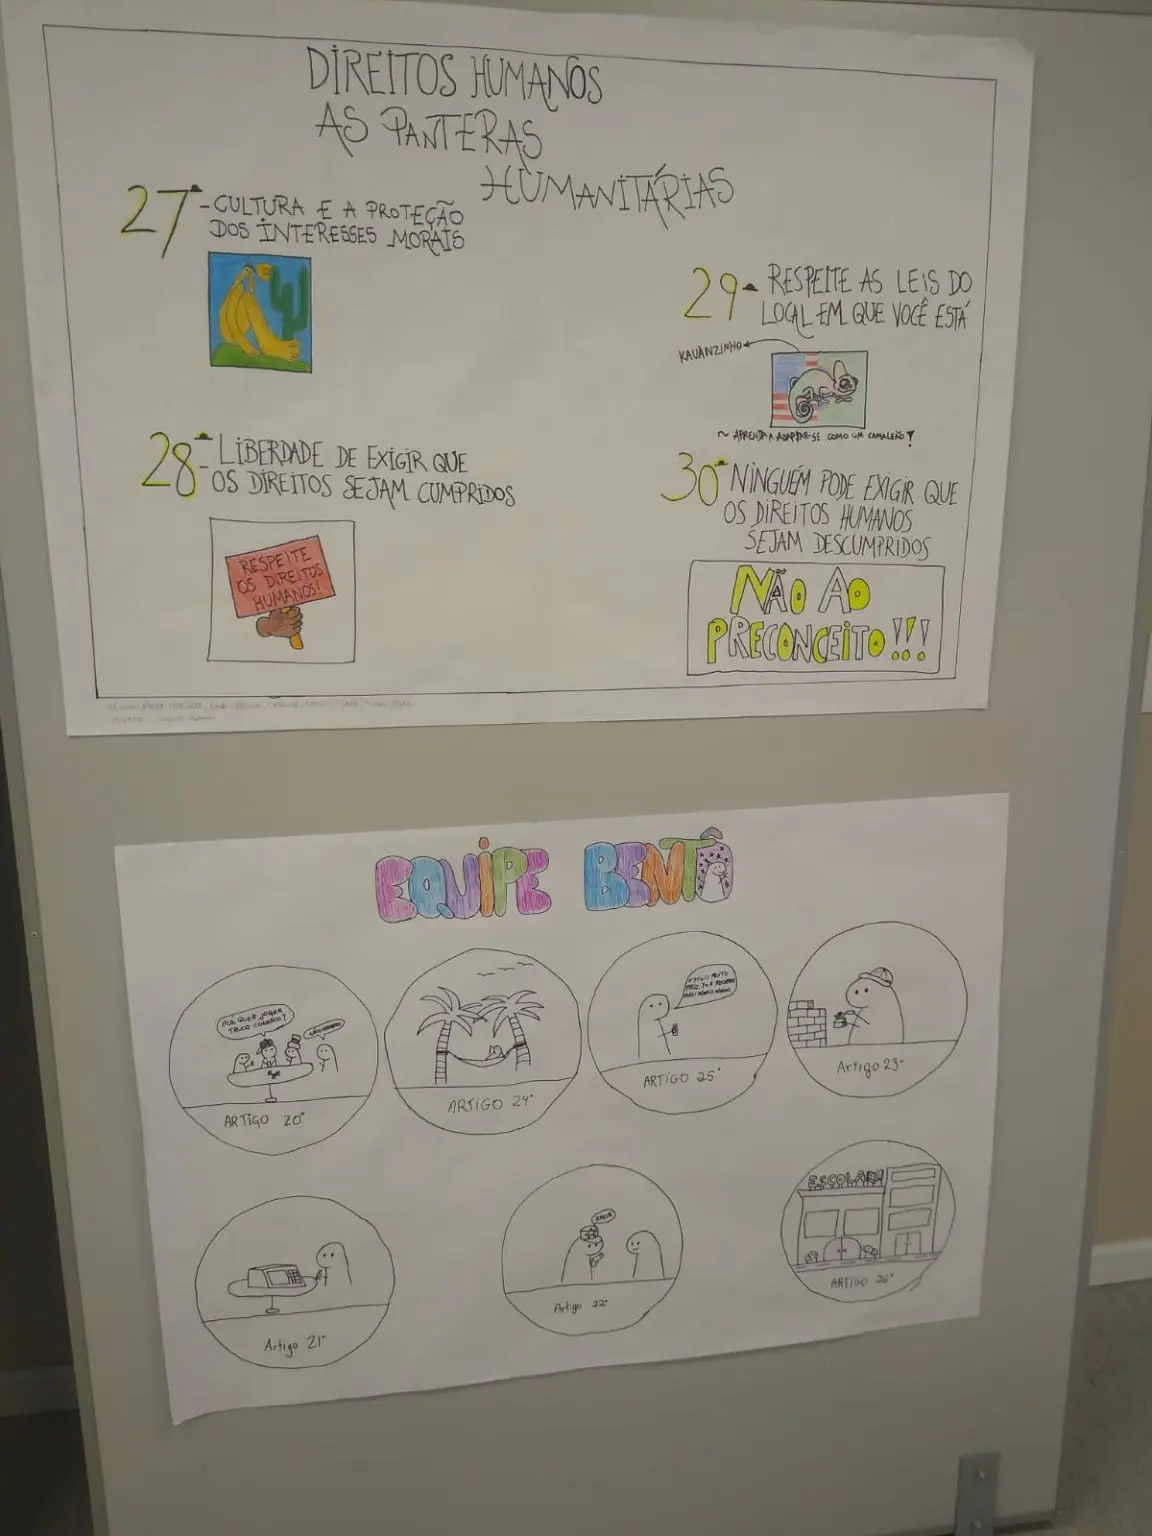 DIREITOS HUMANOS
AS PANTERAS
HUMANITÁRIAS
27º-CULTURA E A PROTEÇÃO
DOS INTERESSES MORAIS
28º-LIBERDADE DE EXIGIR QUE
OS DIREITOS SEJAM CUMPRIDOS
RESPEITE
OS DIREITOS
HUMANOS!
29º RESPEITE AS LEIS DO
LOCAL EM QUE VOCÊ ESTÁ
KAUANZINHO
~ APRENDA A ADAPTAR-SE COMO UM CAMALEÃO!
30º NINGUÉM PODE EXIGIR QUE
OS DIREITOS HUMANOS
SEJAM DESCUMPRIDOS
NÃO AO
PRECONCEITO!!!
EQUIPE BENTÔ
OLÁ QUER JOGAR
TRUCO CONOSCO?
ARTIGO 20º
ARTIGO 24º
ESTOU MUITO
FELIZ POR RECEBER
ARTIGO 25º
Artigo 23º
Artigo 21º
Artigo 22º
ESCOLA
ARTIGO 26º